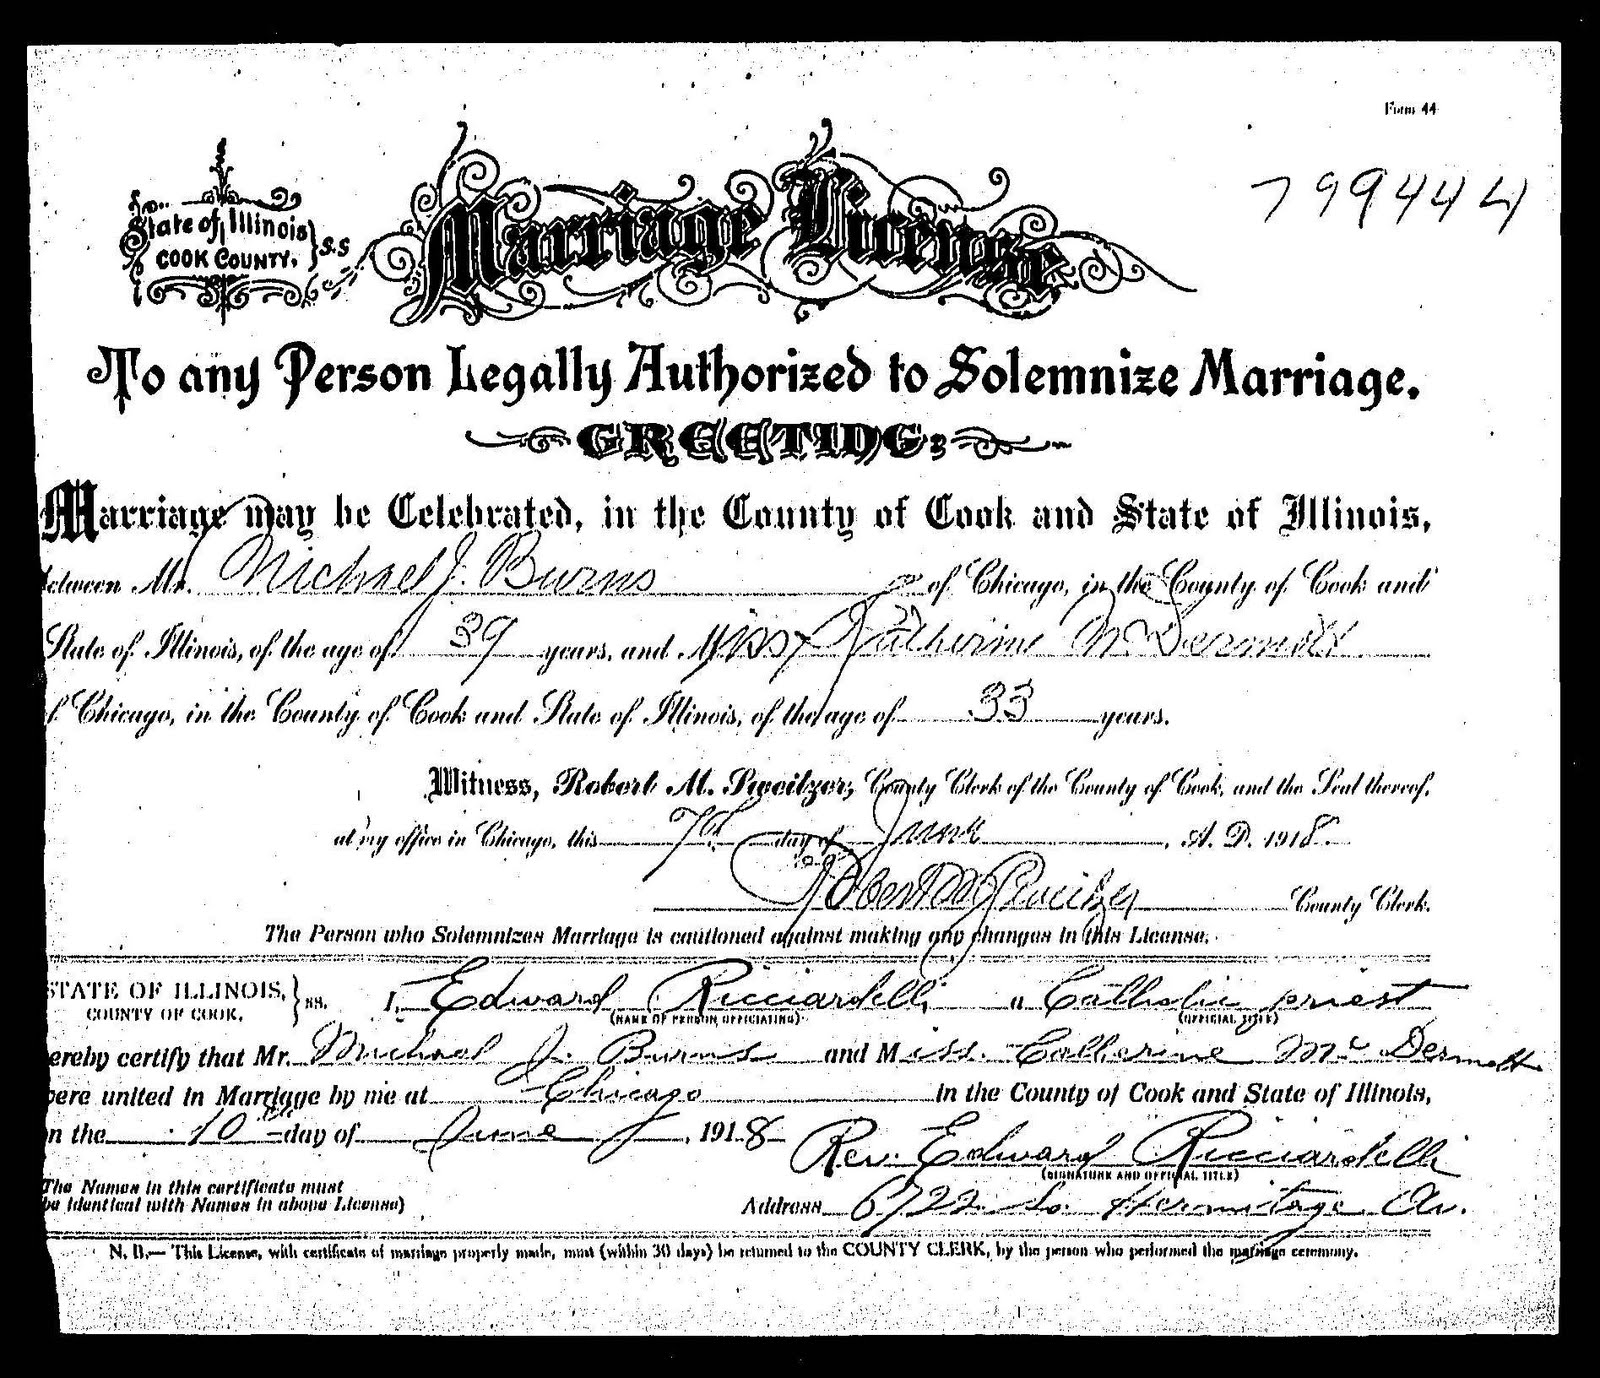 Form 44
799444
State of Illinois } S.S
COOK COUNTY.
Marriage License
To any Person Legally Authorized to Solemnize Marriage.
GREETING:
Marriage may be Celebrated, in the County of Cook and State of Illinois,
etween Mr. Michael J. Burns of Chicago, in the County of Cook and
State of Illinois, of the age of 39 years, and Miss Katherine McDermott
f Chicago, in the County of Cook and State of Illinois, of the age of 33 years.
Witness, Robert M. Sweitzer, County Clerk of the County of Cook, and the Seal thereof,
at my office in Chicago, this 7th day of June, A. D. 1918
Robert M Sweitzer County Clerk.
The Person who Solemnizes Marriage is cautioned against making any changes in this License.
STATE OF ILLINOIS, } ss. I, Edward Ricciardelli a Catholic priest
COUNTY OF COOK. (NAME OF PERSON OFFICIATING) (OFFICIAL TITLE)
ereby certify that Mr. Michael J. Burns and Miss. Catherine Mc Dermott
ere united in Marriage by me at Chicago in the County of Cook and State of Illinois,
n the 10th day of June, 1918 Rev. Edward Ricciardelli
(SIGNATURE AND OFFICIAL TITLE)
The Names in this certificate must
be identical with Names in above License) Address 6722 So. Hermitage Av.
N. B.— This License, with certificate of marriage properly made, must (within 30 days) be returned to the COUNTY CLERK, by the person who performed the marriage ceremony.